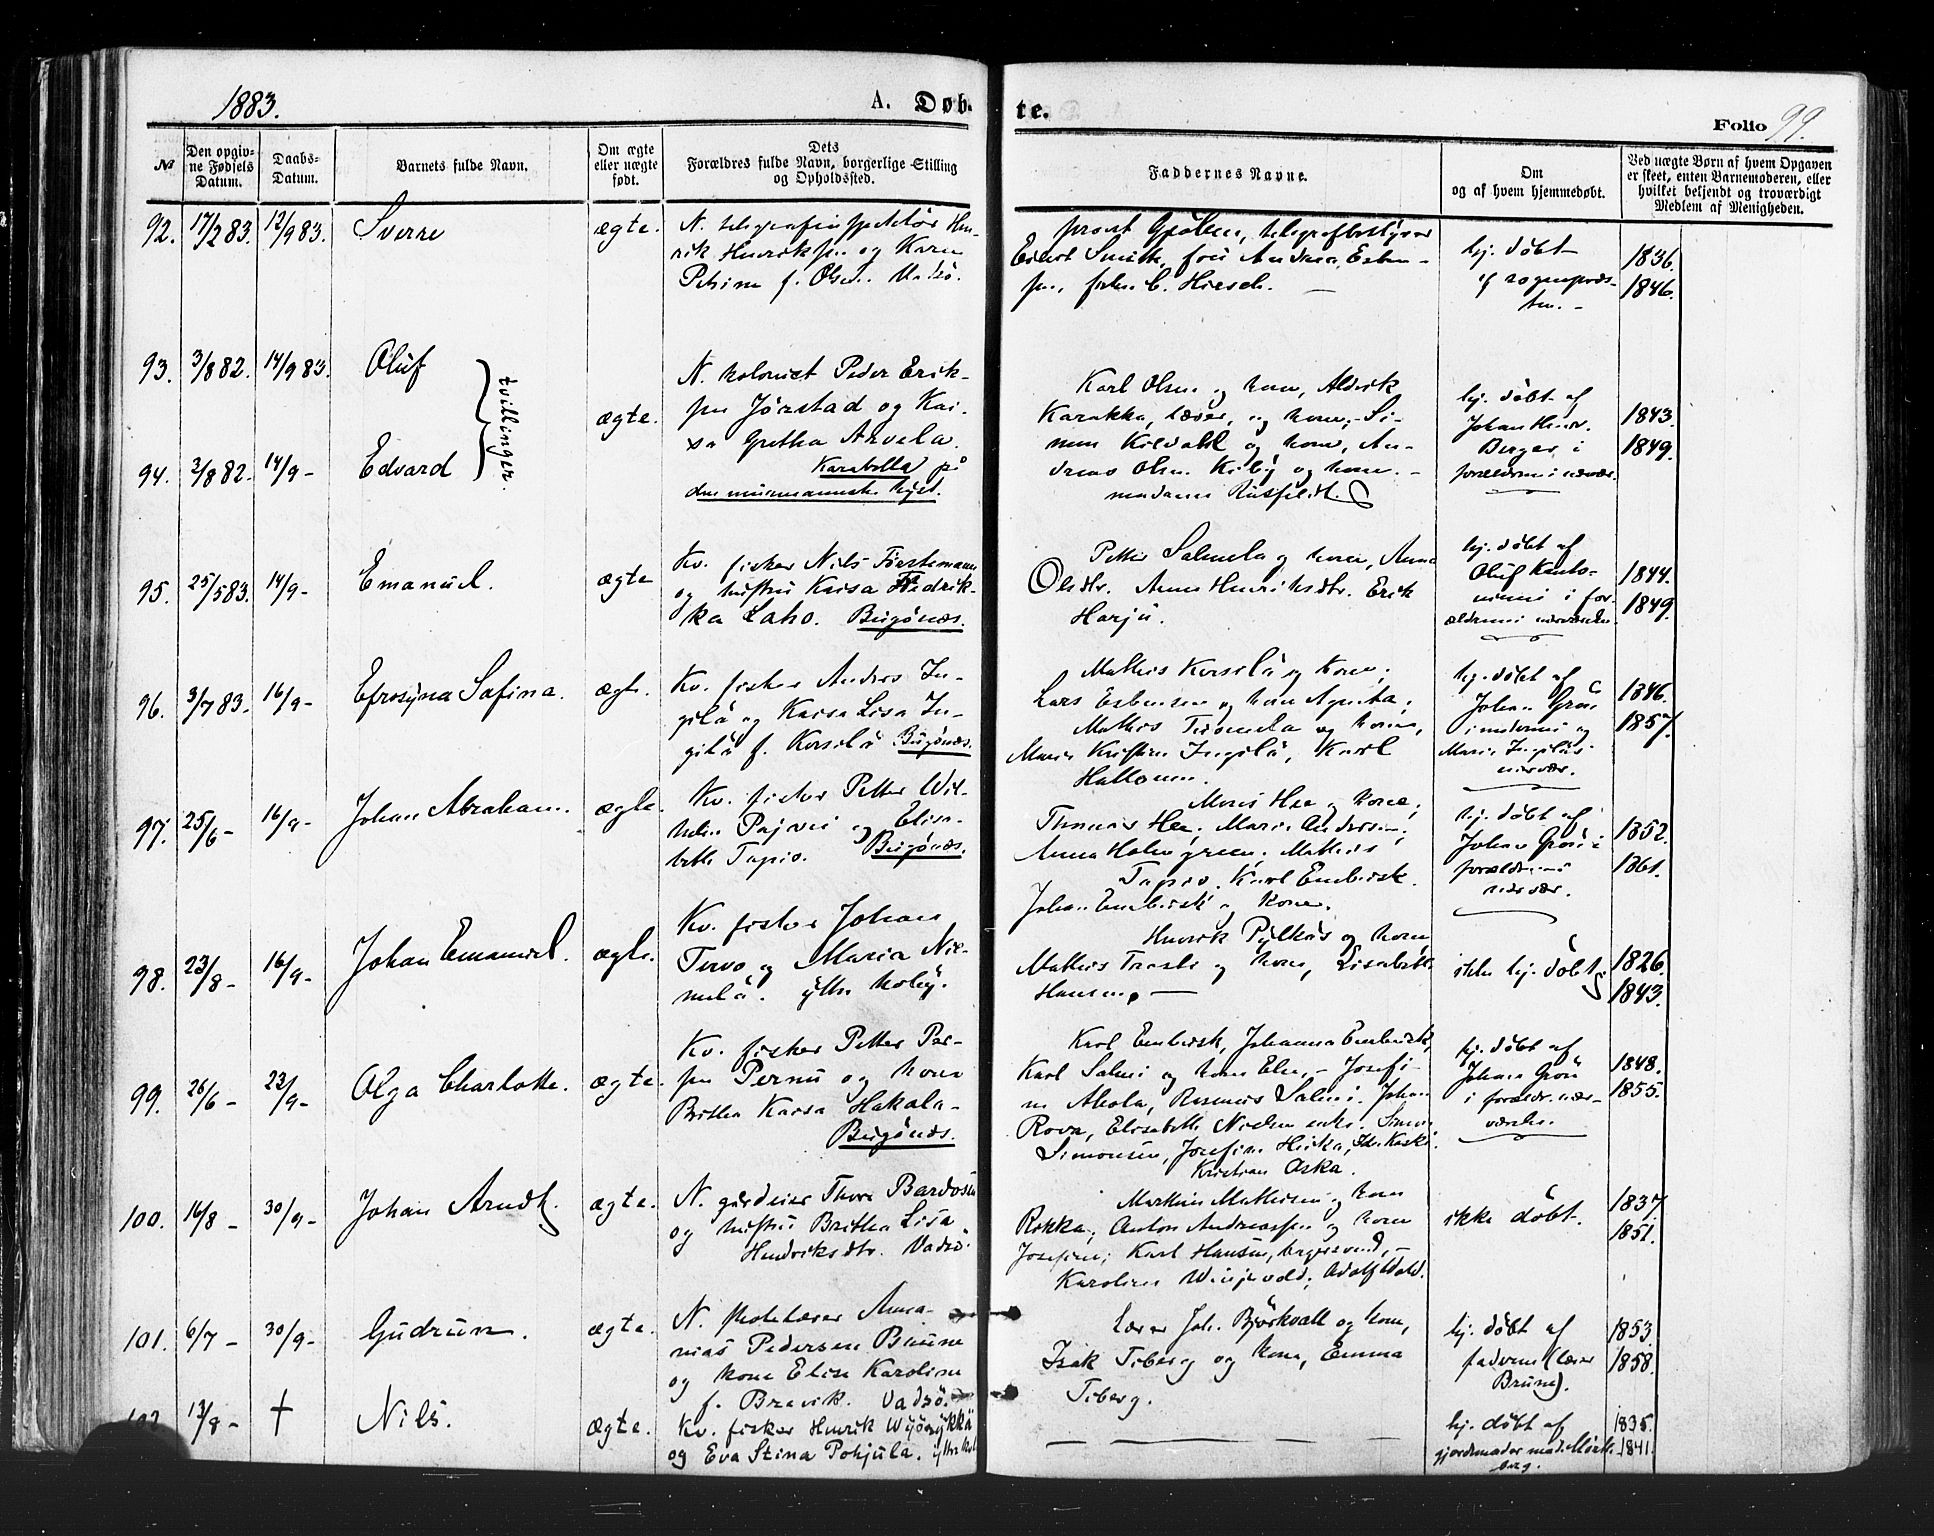 1883.
A. Døb-
te.
Folio 99.
№
Den opgiv-
ne Fødsels
Datum.
Daabs-
Datum.
Barnets fulde Navn.
Om ægte
eller uægte
født.
Dets
Forældres fulde Navn, borgerlige Stilling
og Opholdssted.
Faddernes Navne.
Om
og af hvem hjemmedøbt.
Ved uægte Børn af hvem Opgaven
er skeet, enten Barnemoderen, eller
hvilket bekjendt og troværdigt
Medlem af Menigheden.
92. 17/2 83. 12/9 83. Sverre ægte.
N. telegrafinspektør Hen-
rik Henriksen og Karen
Petrine f. Olsen. Vadsö.
provst telegrafbestyrer
Smith, Andrea Esben-
sen, C. Hirsch. —
hj. döbt
af sognepræs-
ten. -
1836.
1846.
93. 3/8 82. 14/9 83. Oluf
tvillinger.
94. 3/8 82. 14/9 - Edvard
ægte.
N. kolonist Peder Erik-
sen Jørstad og Kai-
sa Gretha Arvela.
Karabella på
den murmanske kyst.
Karl Olsen og kone, Aldrik
Karakka, lærer, og kone, - Si-
mon og kone, An-
dreas Olsen Kiby og kone. -
madame Rusfeldt.
hj. döbt af
Johan Henr.
Berger i
forældrenes nærvær.
1843.
1849.
95. 25/5 83. 14/9 - Emanuel. ægte
Kv. fisker Nils
og hustru Kaisa Fredrik-
ka Laho. Bugönæs.
Petter Salmela og kone, Anna
Olsdtr. Anna Henriksdtr. Erik
Harju.
hj. döbt af
Oluf
i for-
ældrenes nærværelse.
1844.
1849.
96. 3/7 83. 16/9 - Efrosyna Safina. ægte.
Kv. fisker Anders In-
gilä og Kaisa Lisa In-
gilä f. Korsilä Bugönæs.
Mathis Korsilä og kone,
Lars Esbensen og kone Agneta,
Mathis og kone,
Maria Kristine Ingilä, Karl
Hallonen.
hj. döbt af
Johan Grön
i moderens og
Maria Ingiläs
nærvær.
1846.
1857.
97. 25/6 - 16/9 - Johan Abraham. ægte.
Kv. fisker Petter Wil-
helm Pajari og Elisa-
beth Tapio. Bugönæs.
og kone,
Thomas Marie Andersen,
Anna Holmgreen, Mathis
Tapio. Karl Enbusk.
Johan Enbusk og kone.
hj. döbt af
Johan Grön i
forældrenes
nærvær.
1852.
1861.
98. 23/8 - 16/9 - Johan Emanuel. ægte.
Kv. fisker Johan
Tervo og Maria Nie-
melä. ytre Kvby.
Henrik Pylkäs og kone
Mathis og kone, Lisabeth
Hansen. —
ikke hj. döbt.
1826.
1843.
99. 26/6 - 23/9 - Olga Charlotte. ægte.
Kv. fisker Petter Per-
sen Pernu og kone
Britha Kaisa Hakala -
Bugönæs.
Karl Enbusk, Johanna Enbusk,
Karl Salmi og kone Elen, - Josefi-
ne Ahola, Rasmus Salmi. Johan
Rova, Elisabeth Nielsen enke. Simon
Simonsen, Josefine
Kristian Aska.
hj. döbt af
Johan Grön
i forældr. nær-
værelse.
1848.
1855.
100. 16/8 - 30/9 - Johan Arndt. ægte.
N. gårdeier Thore Bardosen
og hustru Britha Lisa
Hendriksdtr. Vadsö.
Martin Mathisen og kone
Rikka; Anton Andreassen og kone
Josefine; Karl Hansen, bagersvend, -
Karoline Adolf Dahl.
ikke döbt.
1837.
1851.
101. 6/7 - 30/9 - Gudrun. ægte.
N. skolelærer Ana-
nias Pedersen Brune
og kone Elise Karoline
f. Brevik. Vadsö.
Lærer Joh. Björkvall og kone,
Isak Tiberg og kone, Emma
Tiberg.
hj. döbt af
faderen (lærer
Brune).
1853.
1858.
13/8 - † Nils. ægte.
Kv. fisker Henrik
og Eva Stina Pohjula.
— — — —
hj. döbt af
gjordmoder mad.
berg.
1835.
1841.